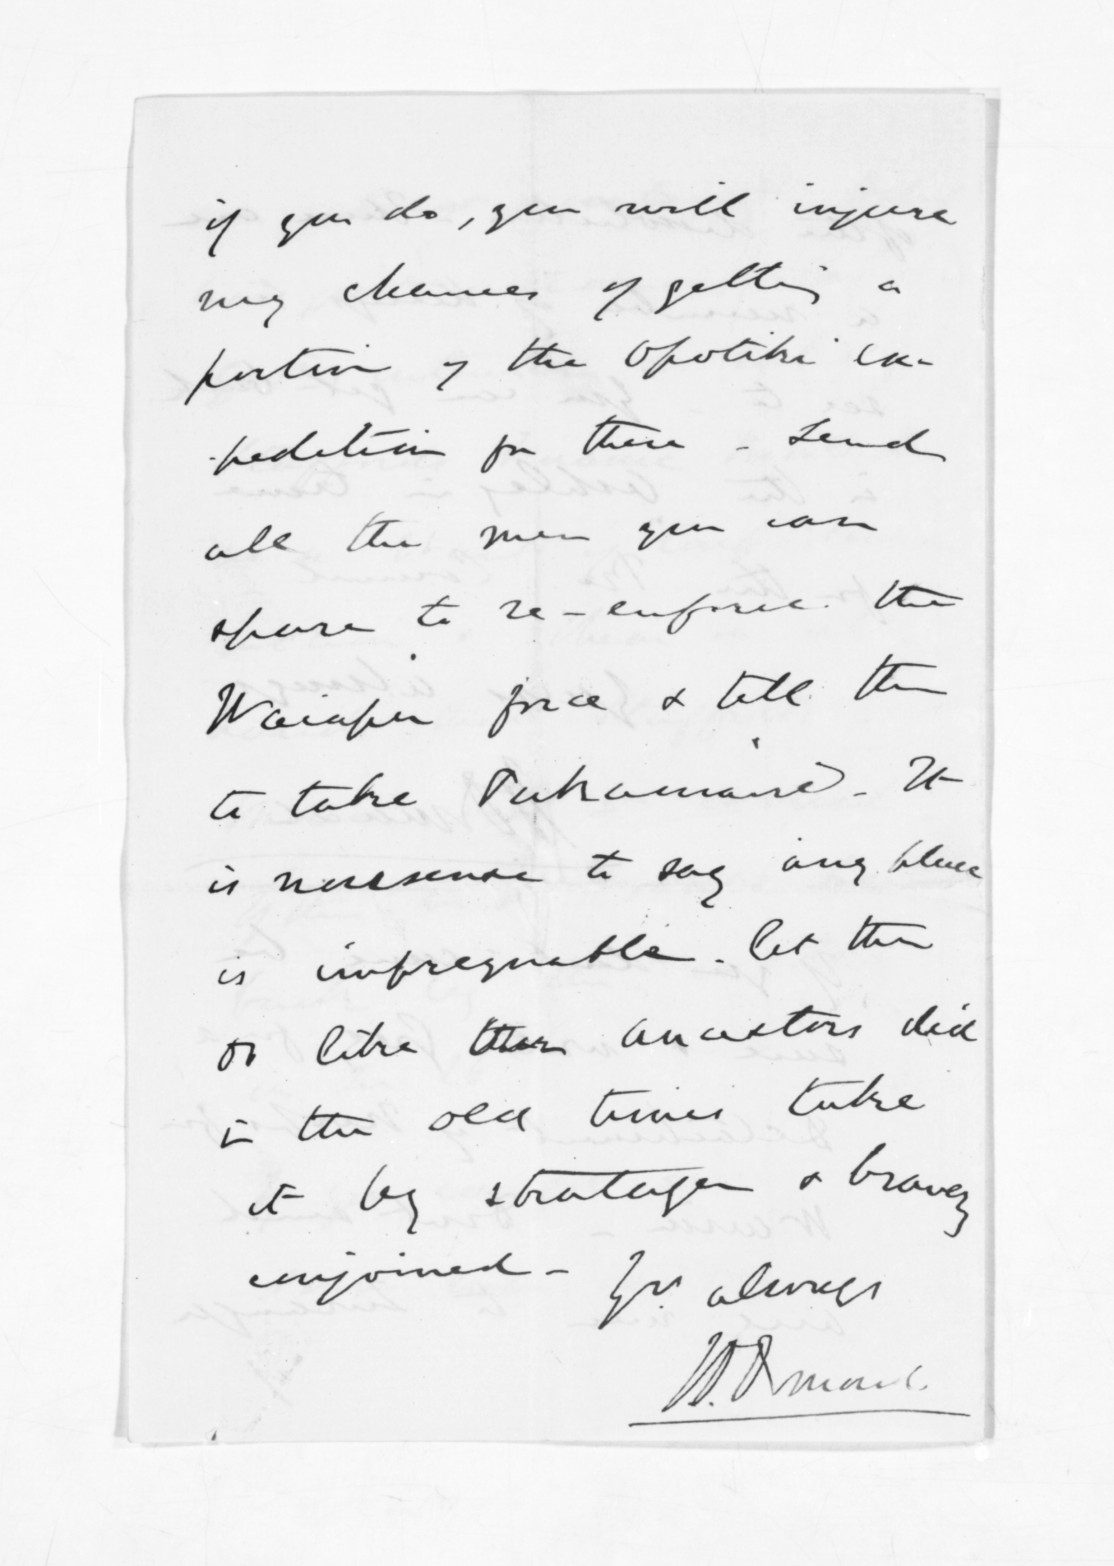 if you do, you will injure
my chances of getting a
portion of the Opotiki ex-
pedition for there - Send
all the men you can
spare to re-enforce the
Waiapu force & tell them
to take Pukamaire - It
is nonsense to say any place
is impregnable. Let them
or like their ancestors did
in the old times take
it by stratagem & bravery
conjoined - Yrs always